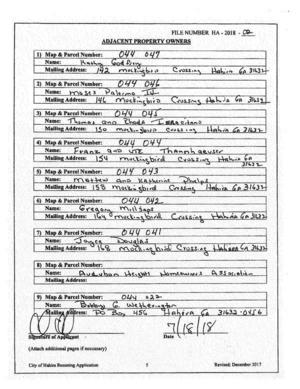 FILE NUMBER HA - 2018 - 02
ADJACENT PROPERTY OWNERS
1) Map & Parcel Number: 044 047
Name: Kathy Godfrey
Mailing Address: 142 mockingbird Crossing Hahira Ga 31632
2) Map & Parcel Number: 044 046
Name: Moses Palermo IV
Mailing Address: 146 mockingbird Crossing Hahira Ga 31632
3) Map & Parcel Number: 044 045
Name: Thomas and Rhoda
Mailing Address: 150 mockingbird crossing Hahira Ga 31632
4) Map & Parcel Number: 044 044
Name: Franz and UTE Thannhaeuser
Mailing Address: 154 mockingbird Crossing Hahira Ga
31632
5) Map & Parcel Number: 044 043
Name: Matthew and Kashune Phelps
Mailing Address: 158 mockingbird Crossing Hahira Ga 31632
6) Map & Parcel Number: 044 042
Name: Gregory Millsaps
Mailing Address: 164 mockingbird Crossing Hahira Ga 31632
7) Map & Parcel Number: 044 041
Name: Joyce Douglas
Mailing Address: 168 mockingbird Crossing Hahira Ga 31632
8) Map & Parcel Number:
Name: Audubon Heights Homeowners Association
Mailing Address:
9) Map & Parcel Number: 044 022
Name: Bobby G. Wetherington
Mailing Address: PO Box 456 Hahira Ga 31632-0456
7/18/18
Signature of Applicant Date
(Attach additional pages if necessary)
City of Hahira Rezoning Application 5 Revised: December 2017